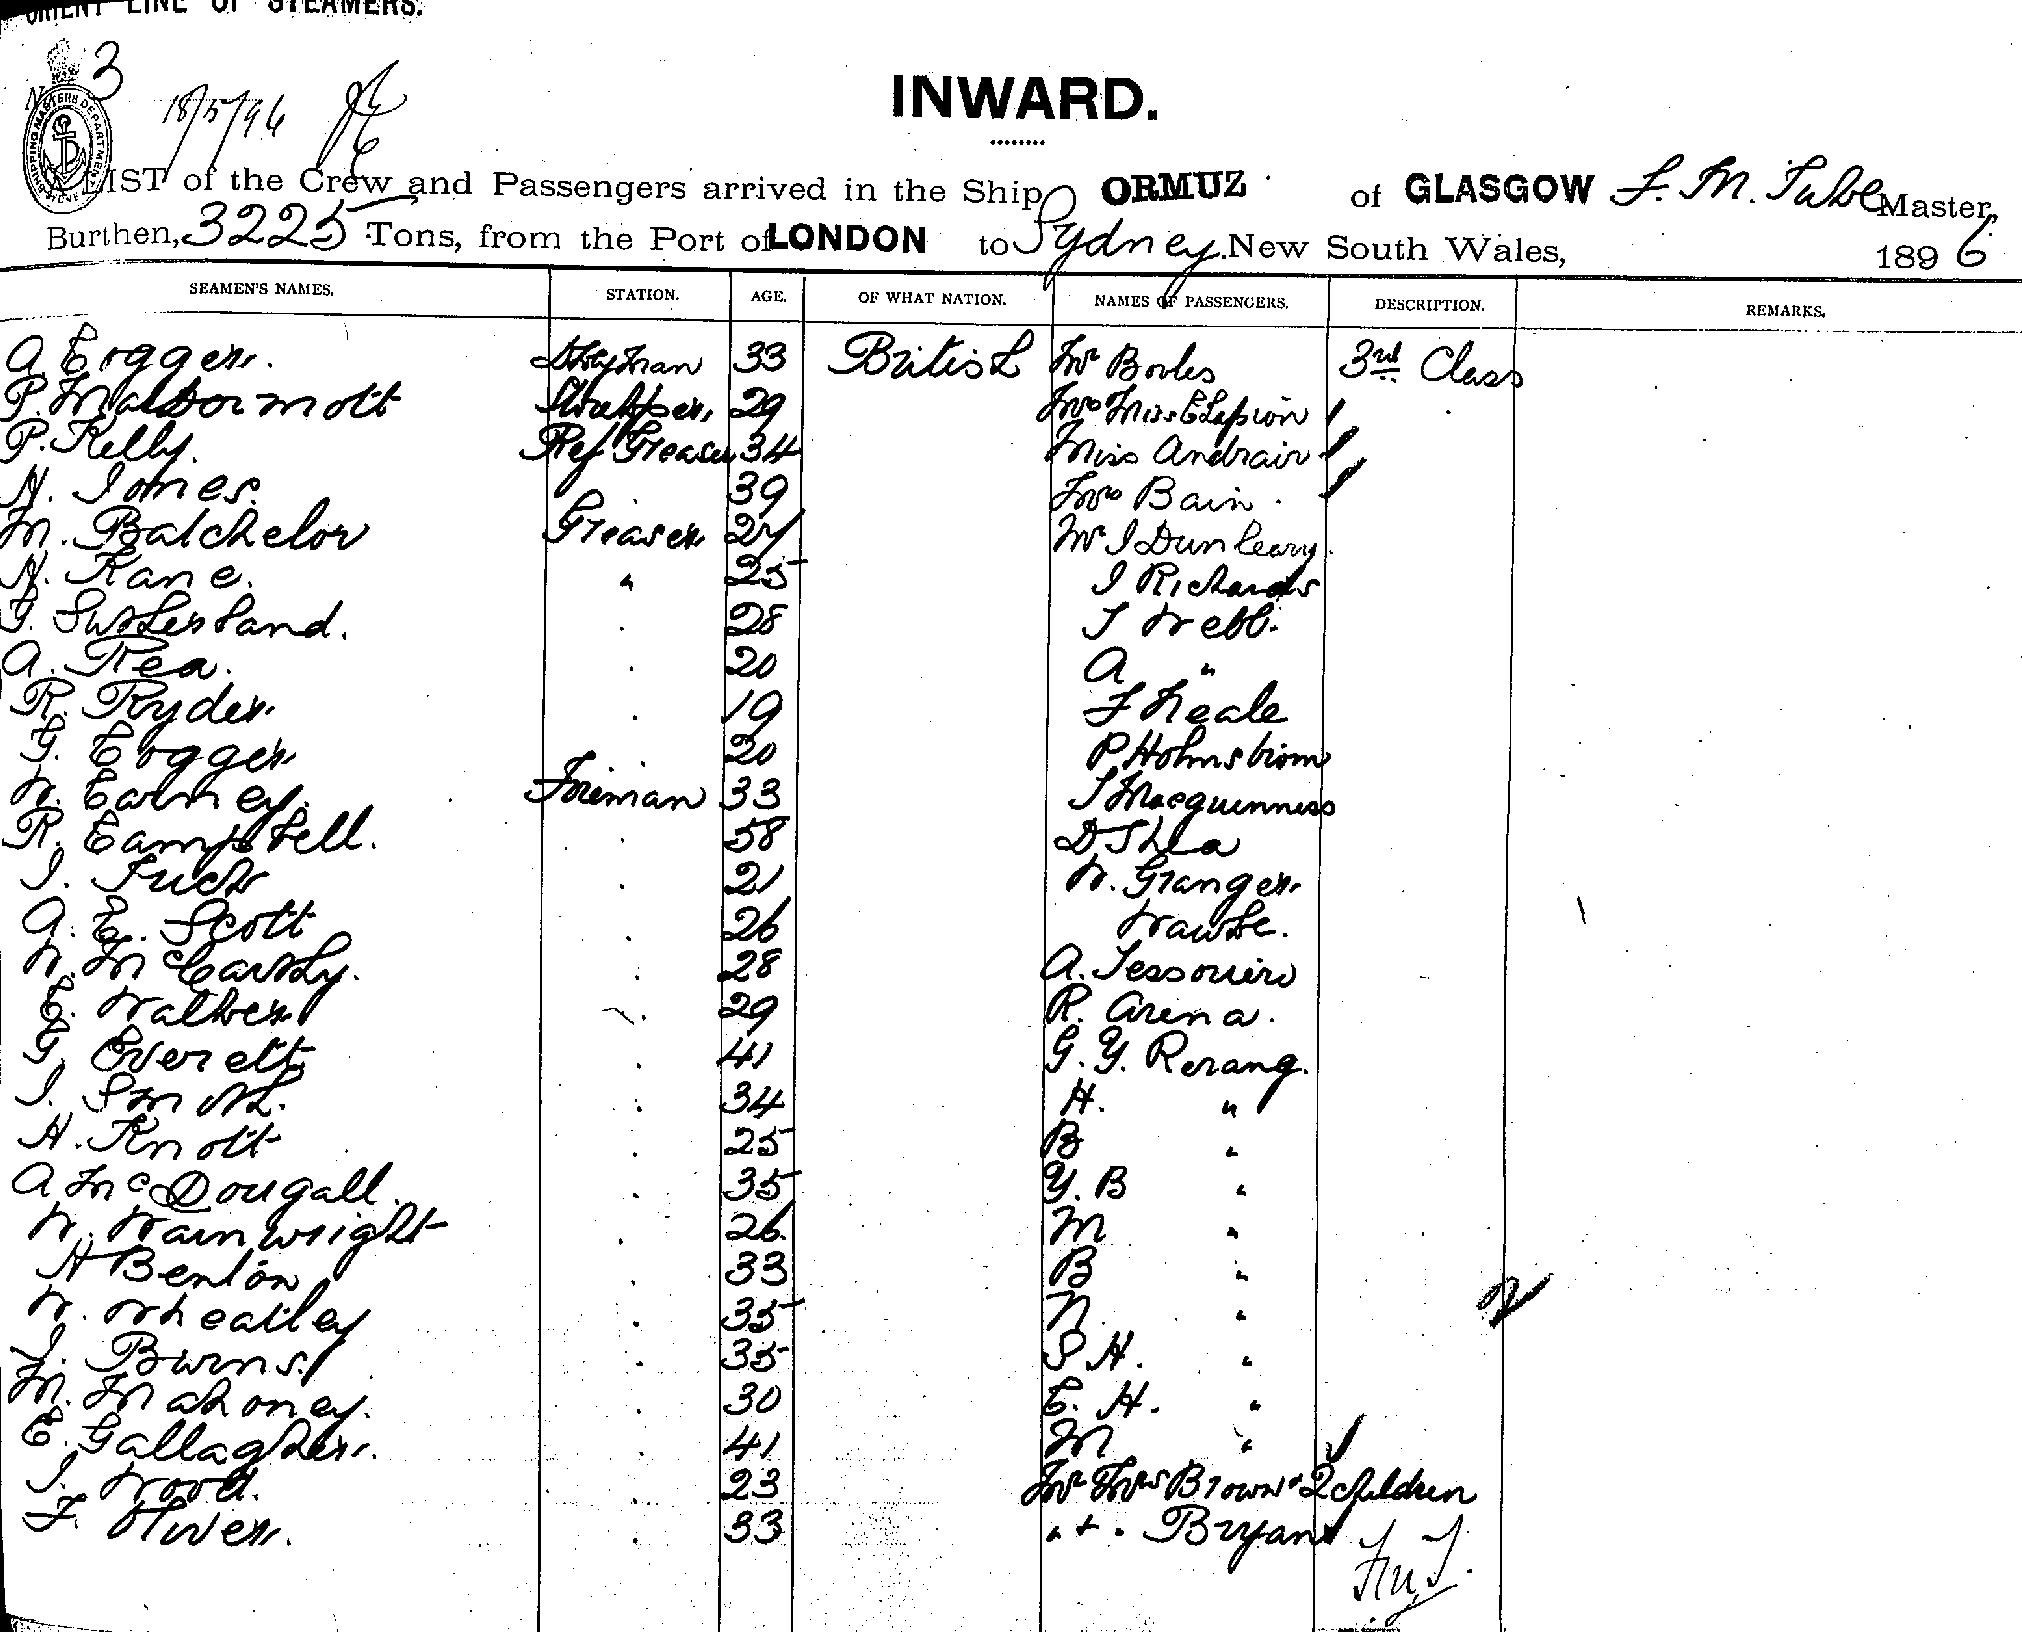 ORIENT LINE OF STEAMERS.
3
18/5/96
INWARD.
A LIST of the Crew and Passengers arrived in the Ship ORMUZ of GLASGOW F. M. Tuke Master,
Burthen, 3225 Tons, from the Port of LONDON to Sydney. New South Wales, 1896
SEAMEN'S NAMES. STATION. AGE. OF WHAT NATION. NAMES OF PASSENGERS. DESCRIPTION. REMARKS.
A Cogger. 33 British Mr Bowles 3rd Class
P. MacDermott 29 Mrs Miss
P. Kelly. Ref Greaser 34 Miss Andrair
H. Jones. 39 Mrs Bain
M. Batchelor Greaser 27 Mr J Dunleavy.
H. Kane. " 25 J Richards
G. Sutherland. 28 T Webb.
A. Rea. 20 A "
R. Ryder. 19 F Neale
G. Cogger 20 P Holmstrom
W. Carney. Fireman 33 J Macguinness
R. Campbell. 58 D Shea
J. Tuck 21 W. Granger.
A. E. Scott 26 Wawke.
W. McCarthy. 28 A. Tessouiro
C. Walker 29 R. Arena.
G. Everett 41 G. Y. Rerang.
J. Smith. 34 H. "
H. Knott 25 B "
A McDougall. 35 Y. B "
W. Wainwright 26 M "
H Benton 33 B "
W. Wheatley 35 N "
J. Burns. 35 S H. "
M. Mahoney. 30 C. H. "
E. Gallagher. 41 M "
J. Wood. 23 Mr Mrs Brown + 2 children
F. Oliver. 33 " + " Bryant